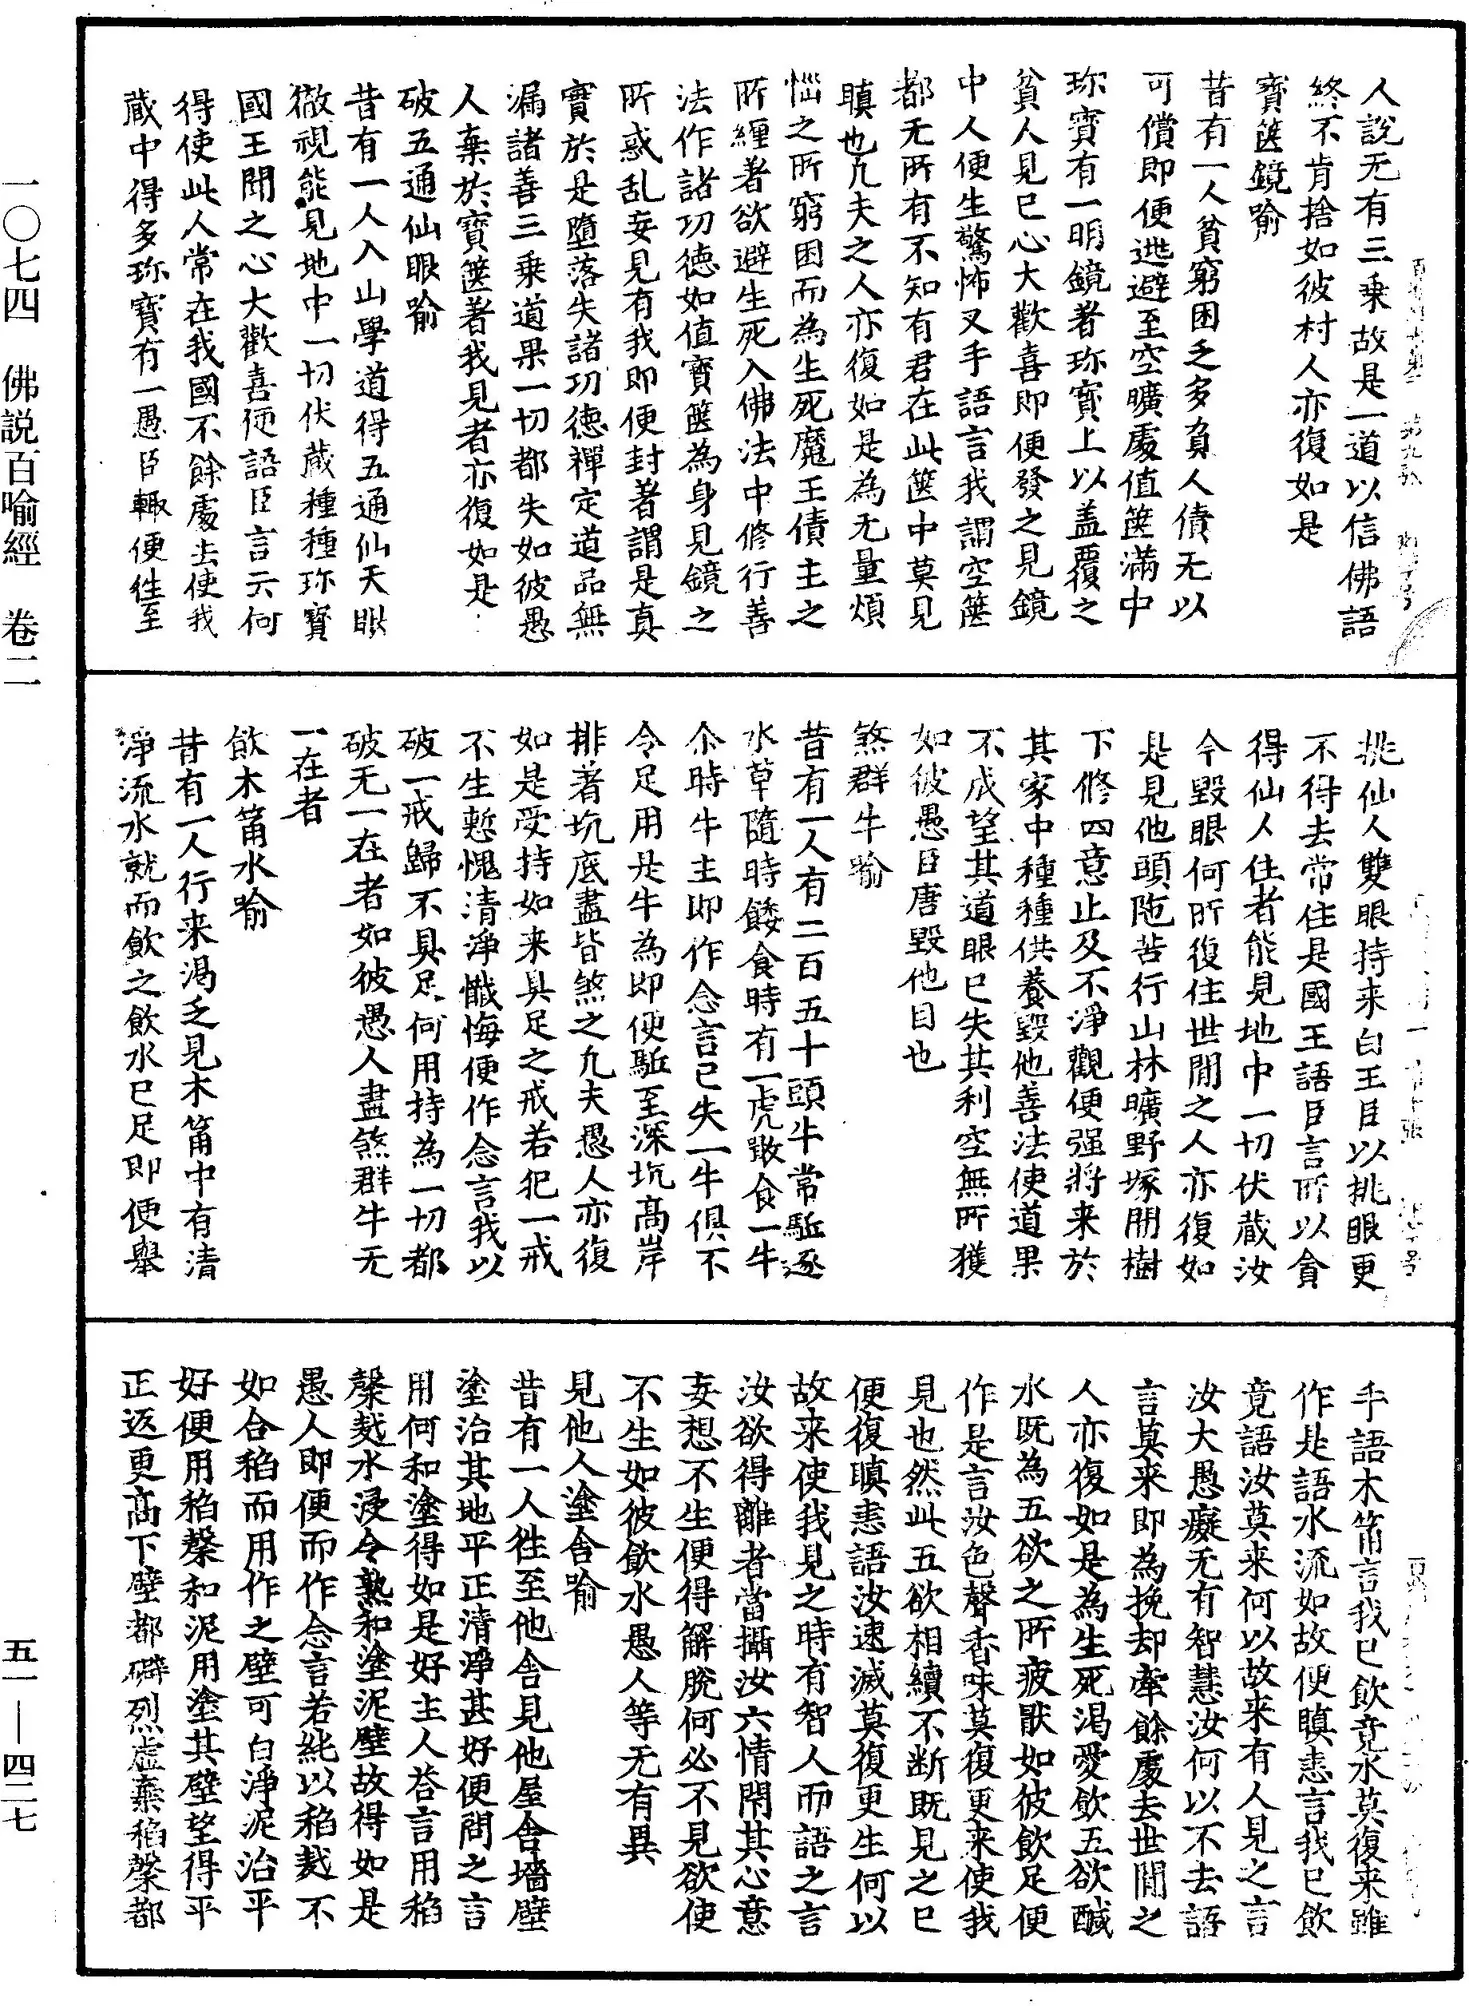 人說无有三乗故是一道以信佛語
終不肯捨如彼村人亦復如是
寶篋鏡喻
昔有一人貧窮困乏多負人債无以
可償即便逃避至空曠處值篋滿中
珎寶有一明鏡著珎寶上以盖覆之
貧人見已心大歡喜即便發之見鏡
中人便生驚怖叉手語言我謂空篋
都无所有不知有君在此篋中莫見
瞋也凢夫之人亦復如是為无量煩
惱之所窮困而為生死魔王債主之
所纏著欲避生死入佛法中修行善
法作諸功德如值寶篋為身見鏡之
所惑乱妄見有我即便封著謂是真
實於是墮落失諸功德禪定道品無
漏諸善三乗道果一切都失如彼愚
人棄於寶篋著我見者亦復如是
破五通仙眼喻
昔有一人入山學道得五通仙天眼
徹視能見地中一切伏藏種種珎寶
國王聞之心大歡喜便語臣言云何
得使此人常在我國不餘處去使我
藏中得多珎寶有一愚臣輙便往至
挑仙人雙眼持来白王臣以挑眼更
不得去常住是國王語臣言所以貪
得仙人住者能見地中一切伏藏汝
今毀眼何所復住世間之人亦復如
是見他頭陁苦行山林曠野塚間樹
下修四意止及不淨觀便强將来於
其家中種種供養毀他善法使道果
不成望其道眼已失其利空無所獲
如彼愚臣唐毀他目也
煞群牛喻
昔有一人有二百五十頭牛常駈逐
水草隨時餧食時有一虎噉食一牛
尒時牛主即作念言已失一牛俱不
令足用是牛為即便駈至深坑高岸
排著坑底盡皆煞之凢夫愚人亦復
如是受持如来具足之戒若犯一戒
不生慙愧清淨懺悔便作念言我以
破一戒歸不具足何用持為一切都
破无一在者如彼愚人盡煞群牛无
一在者
飲木筩水喻
昔有一人行来渴乏見木筩中有清
淨流水就而飲之飲水已足即便舉
手語木筩言我已飲竟水莫復来雖
作是語水流如故便瞋恚言我已飲
竟語汝莫来何以故来有人見之言
汝大愚癡无有智慧汝何以不去語
言莫来即為挽却牽餘處去世間之
人亦復如是為生死渴愛飲五欲醎
水既為五欲之所疲猒如彼飲足便
作是言汝色聲香味莫復更来使我
見也然此五欲相續不断既見之已
便復瞋恚語汝速滅莫復更生何以
故来使我見之時有智人而語之言
汝欲得離者當攝汝六情閇其心意
妄想不生便得解脫何必不見欲使
不生如彼飲水愚人等无有異
見他人塗舍喻
昔有一人往至他舍見他屋舍墻壁
塗治其地平正清淨甚好便問之言
用何和塗得如是好主人荅言用稻
𪍿𪌭水浸令熟和塗泥壁故得如是
愚人即便而作念言若純以稻𪌭不
如合稻而用作之壁可白淨泥治平
好便用稻𪍿和泥用塗其壁望得平
正返更高下壁都礔烈虛棄稻𪍿都
一〇七四　佛説百喻經　卷二
五一—四二七